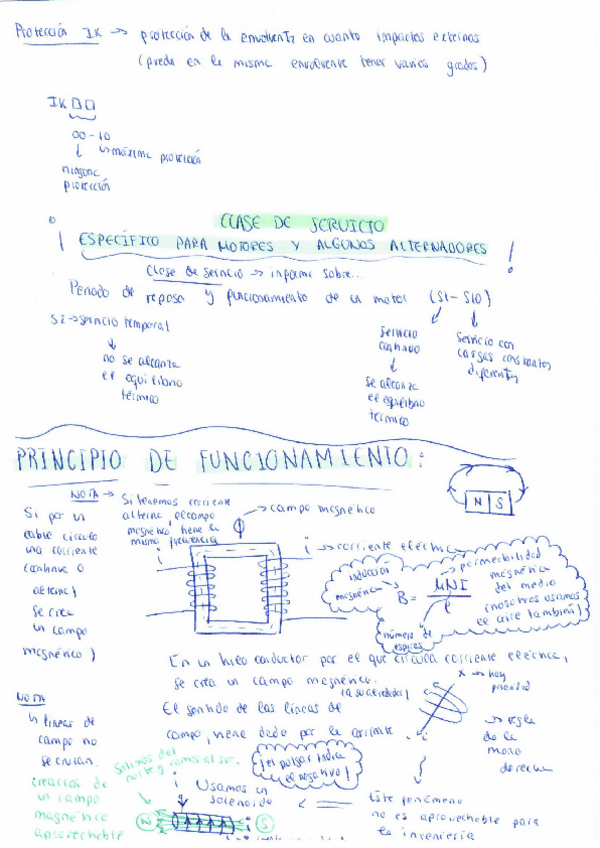 Protección IK → protección de la envolvente en cuanto impactos externos
(puede en la misma envolvente tener varios grados)
IK□□
00-10
↳ máxima protección
ninguna
protección
CLASE DE SERVICIO
¡ ESPECÍFICO PARA MOTORES Y ALGUNOS ALTERNADORES !
Clase de servicio → informa sobre...
Periodo de reposo y funcionamiento de un motor (S1-S10)
S2 → servicio temporal
no se alcanza
el equilibrio
térmico
servicio
continuo
se alcanza
el equilibrio
térmico
servicio con
cargas constantes
diferentes
PRINCIPIO DE FUNCIONAMIENTO:
N S
NOTA → Si tenemos corriente
alterna, el campo
magnético tiene la
misma frecuencia
Φ → campo magnético
Si por un
cable circula
una corriente
continua o
alterna,
se crea
un campo
magnético)
i
i → corriente eléctrica
inducción
magnética
B = μNI / l
permeabilidad
magnética
del medio
(nosotros usamos
el aire también)
número de
espiras
En un hilo conductor por el que circula corriente eléctrica,
se crea un campo magnético.
El sentido de las líneas de
campo, viene dado por la corriente.
x → hay
i
→ regla
de la
mano
derecha
NOTA
↳ líneas de
campo no
se cruzan.
¡el pulgar indica
el negativo!
Salimos del
norte y vamos al sur.
creación de
un campo
magnético
aprovechable
Usamos un
solenoide
N
S
i
Este fenómeno
no es aprovechable para
la ingeniería